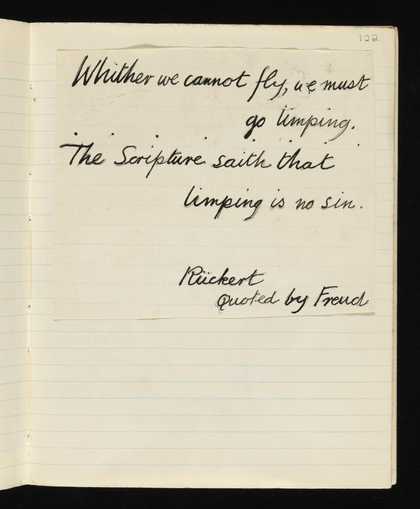 132
Whither we cannot fly, we must
go limping.
The Scripture saith that
limping is no sin.
Rückert
Quoted by Freud